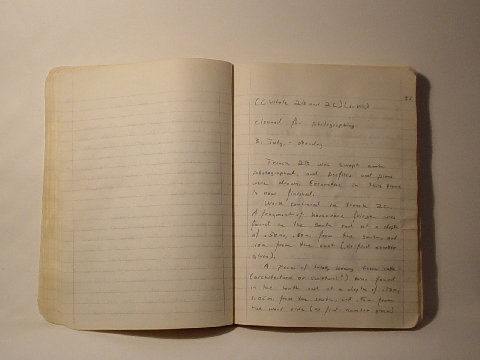 (Citadel 2B and 2C) (cont.)
cleaned for photography.
8. July. - Monday
Trench 2B was swept and
photographed, and profiles and plans
were drawn. Excavation in this trench
is now finished.
Work continued in Trench 2C.
A fragment of frieze was
found in the south end at a depth
of .50m, .80m from the south, and
.10m from the east (no find number
given).
A piece of heavy
(architecture or sculpture?) was found
in the south end at a depth of
from the south, and from
the west side (no find number given).